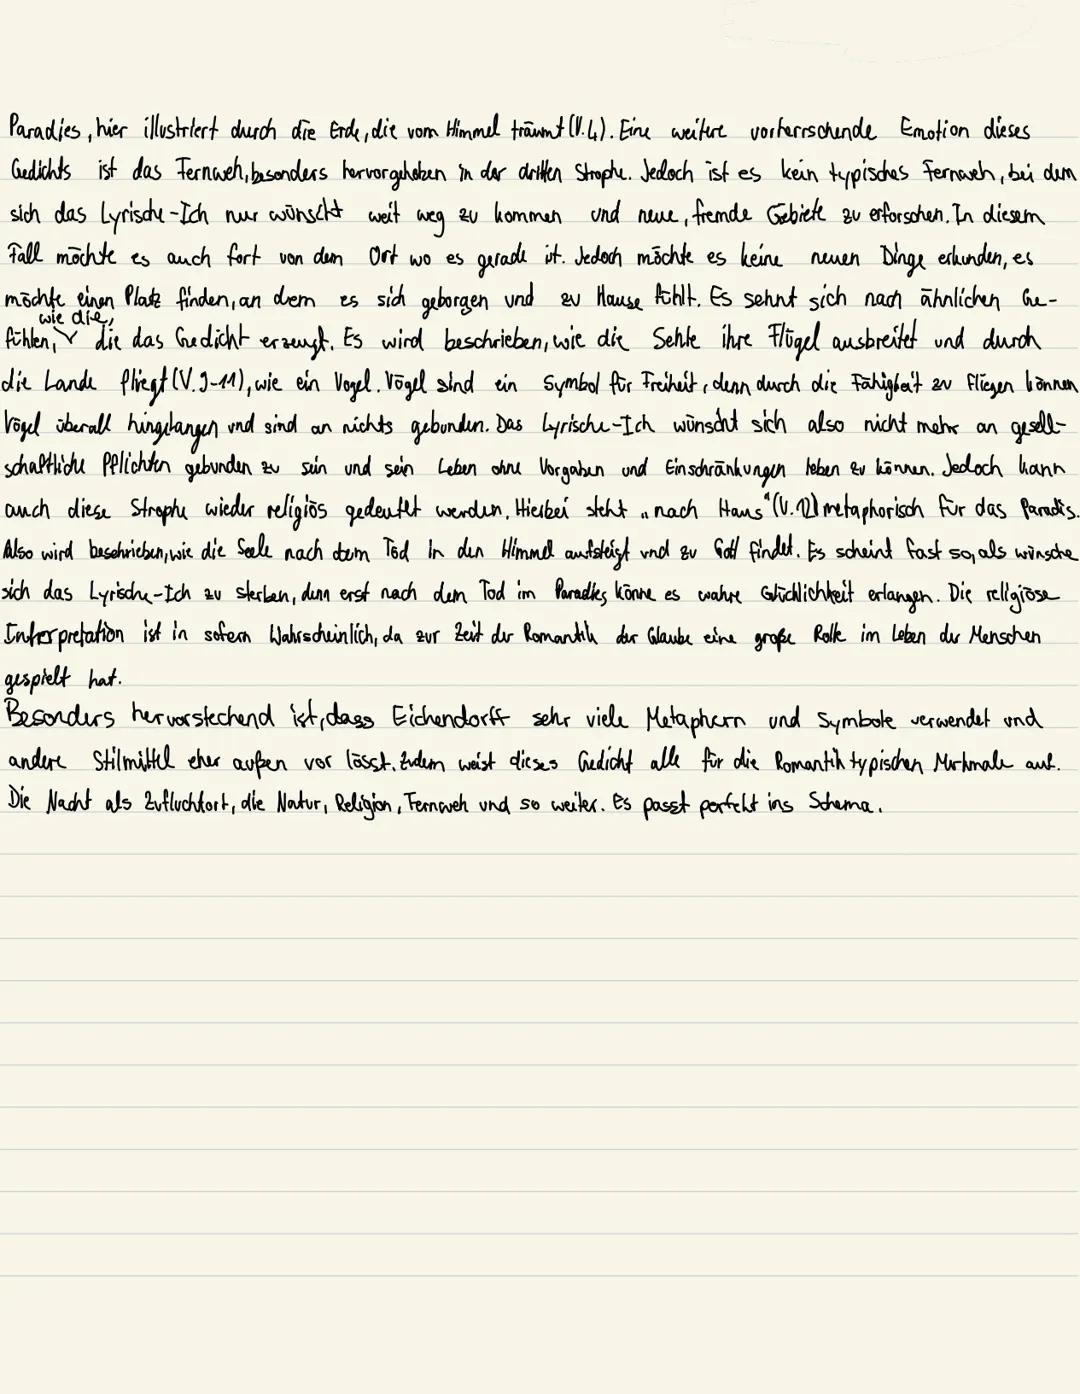 Paradies, hier illustriert durch die Erde, die vom Himmel träumt (V.4). Eine weitere vorherrschende Emotion dieses
Gedichts ist das Fernweh, besonders hervorgehoben in der dritten Strophe. Jedoch ist es kein typisches Fernweh, bei dem
sich das Lyrische-Ich nur wünscht weit weg zu kommen und neue, fremde Gebiete zu erforschen. In diesem
Fall möchte es auch fort von dem Ort wo es gerade ist. Jedoch möchte es keine neuen Dinge erkunden, es
möchte einen Platz finden, an dem es sich geborgen und zu Hause fühlt. Es sehnt sich nach ähnlichen Ge-
wie die,
fühlen, die das Gedicht erzeugt. Es wird beschrieben, wie die Sehle ihre Flügel ausbreitet und durch
die Lande fliegt (V.9-11), wie ein Vogel. Vögel sind ein Symbol für Freiheit, denn durch die Fähigkeit zu Fliegen können
Vögel überall hingelangen und sind an nichts gebunden. Das Lyrische-Ich wünscht sich also nicht mehr an gesell-
schaftliche Pflichten gebunden zu sein und sein Leben ohne Vorgaben und Einschränkungen leben zu können. Jedoch kann
auch diese Strophe wieder religiös gedeutet werden. Hierbei steht „nach Haus" (V.12) metaphorisch für das Paradis.
Also wird beschrieben, wie die Seele nach dem Tod in den Himmel aufsteigt und zu Gott findet. Es scheint fast so, als wünsche
sich das Lyrische-Ich zu sterben, denn erst nach dem Tod im Paradies könne es wahre Glücklichkeit erlangen. Die religiöse
Interpretation ist in sofern Wahrscheinlich, da zur Zeit der Romantik der Glaube eine große Rolle im Leben der Menschen
gespielt hat.
Besonders hervorstechend ist, dass Eichendorff sehr viele Metaphern und Symbole verwendet und
andere Stilmittel eher außen vor lässt. Zudem weist dieses Gedicht alle für die Romantik typischen Merkmale auf.
Die Nacht als Zufluchtort, die Natur, Religion, Fernweh und so weiter. Es passt perfekt ins Schema.